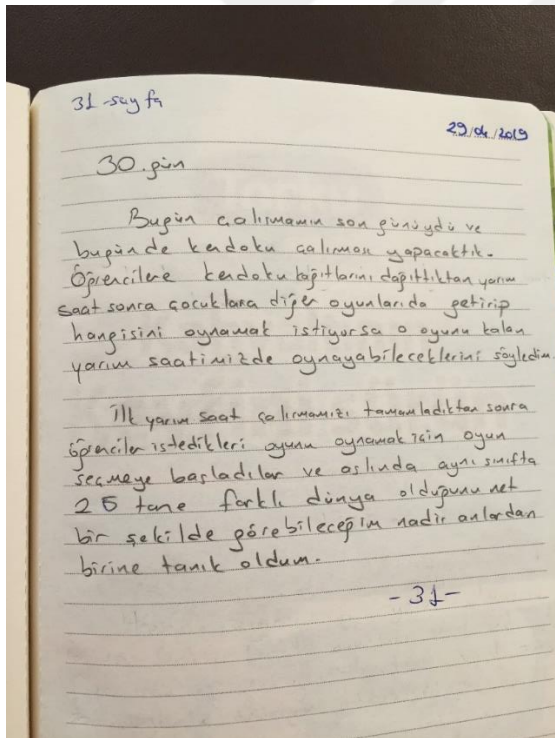 31-sayfa
29/04/2019
30.gün
Bugün çalışmamın son günüydü ve
bugünde kendoku çalışması yapacaktık.
Öğrencilere kendoku kağıtlarını dağıttıktan yarım
saat sonra çocuklara diğer oyunlarıda getirip
hangisini oynamak istiyorsa o oyunu kalan
yarım saatimizde oynayabileceklerini söyledim.
İlk yarım saat çalışmamızı tamamladıktan sonra
öğrenciler istedikleri oyunu oynamak için oyun
seçmeye başladılar ve aslında aynı sınıfta
25 tane farklı dünya olduğunu net
bir şekilde görebileceğim nadir anlardan
birine tanık oldum.
-31-